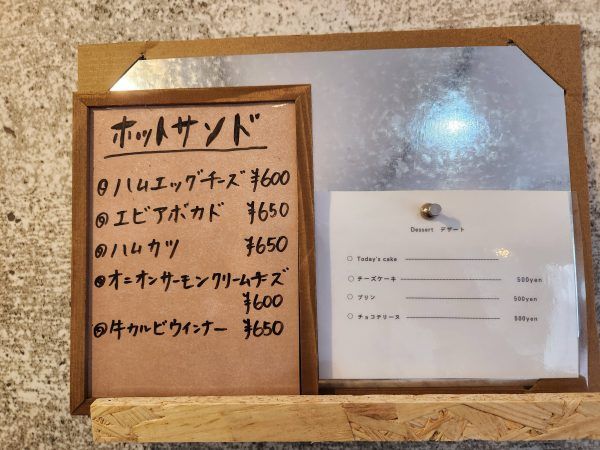 ホットサンド
◎ハムエッグチーズ ¥600
◎エビアボカド ¥650
◎ハムカツ ¥650
◎オニオンサーモンクリームチーズ
¥600
◎牛カルビウインナー ¥650
Dessert デザート
○ Today's cake
○ チーズケーキ 500yen
○ プリン 500yen
○ チョコテリーヌ 500yen